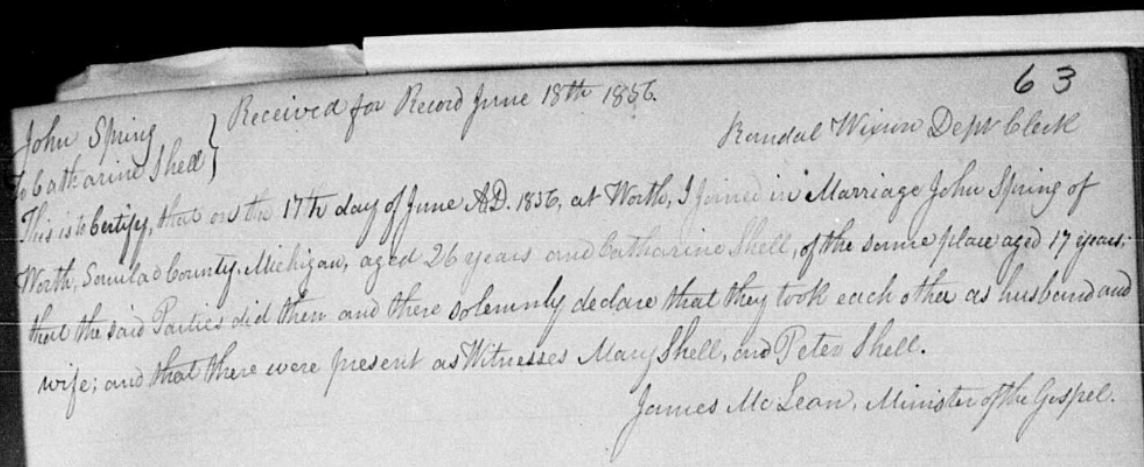 63
John Spring
to Catharine Shell } Received for Record June 18th 1856.
Randal Wixson Dept Clerk
This is to Certify, that on the 17th day of June A.D. 1856, at Worth, I joined in Marriage John Spring of
Worth, Sanilac County, Michigan, aged 26 years and Catharine Shell, of the same place aged 17 years;
that the said Parties did then and there solemnly declare that they took each other as husband and
wife; and that there were present as Witnesses Mary Shell, and Peter Shell.
James McLean, Minister of the Gospel.